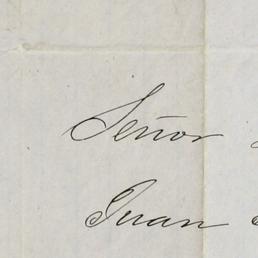 Señor
Juan